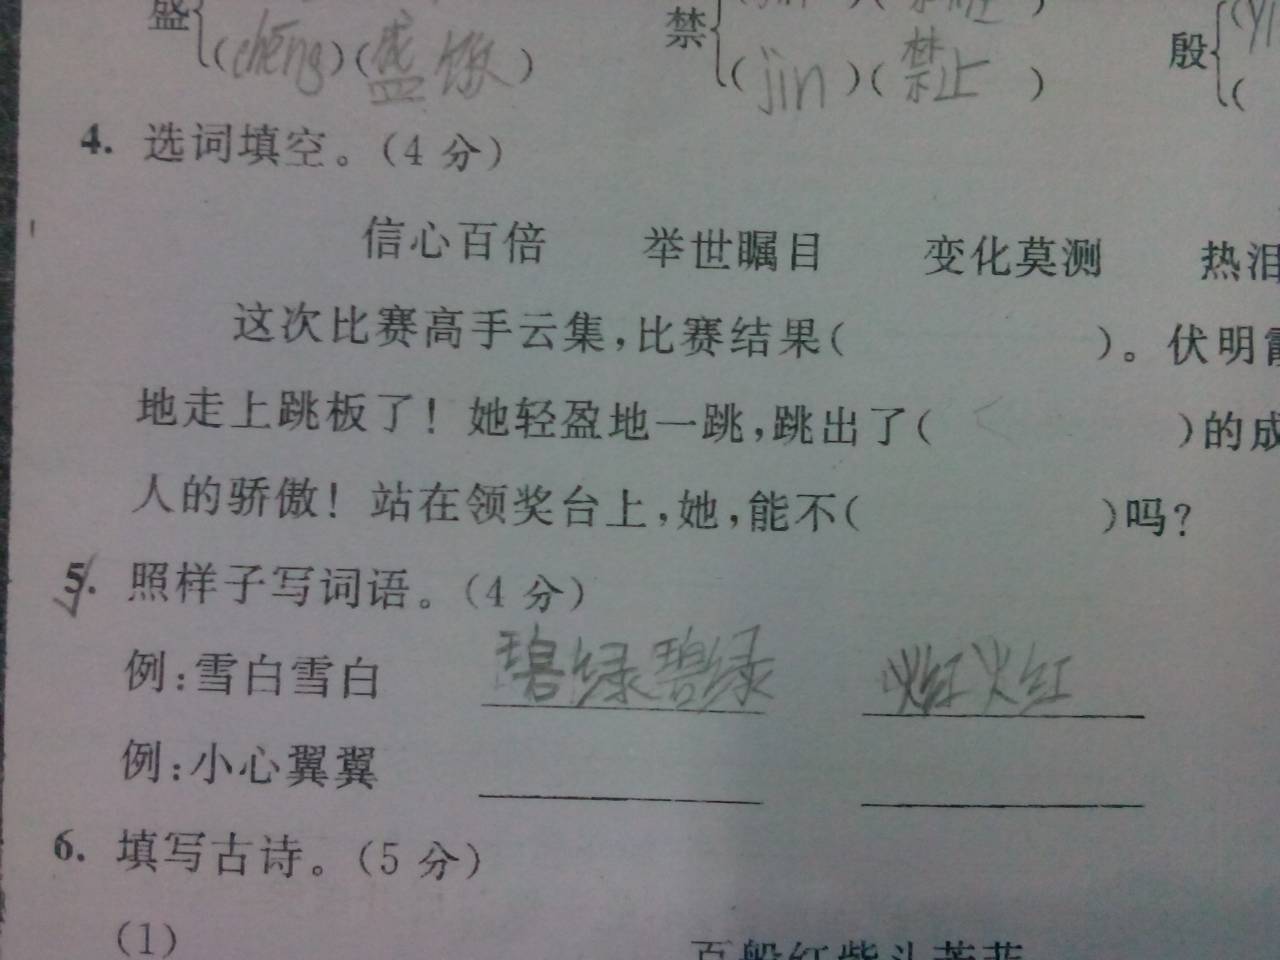 盛 (chēng)(盛饭) 禁 (jìn)(禁止) 殷
4. 选词填空。(4 分)
信心百倍 举世瞩目 变化莫测 热泪
这次比赛高手云集,比赛结果( )。伏明霞
地走上跳板了! 她轻盈地一跳,跳出了( )的成
人的骄傲! 站在领奖台上,她,能不( )吗?
5. 照样子写词语。(4 分)
例:雪白雪白 碧绿碧绿 火红火红
例:小心翼翼
6. 填写古诗。(5 分)
(1) 百般红紫斗芳菲